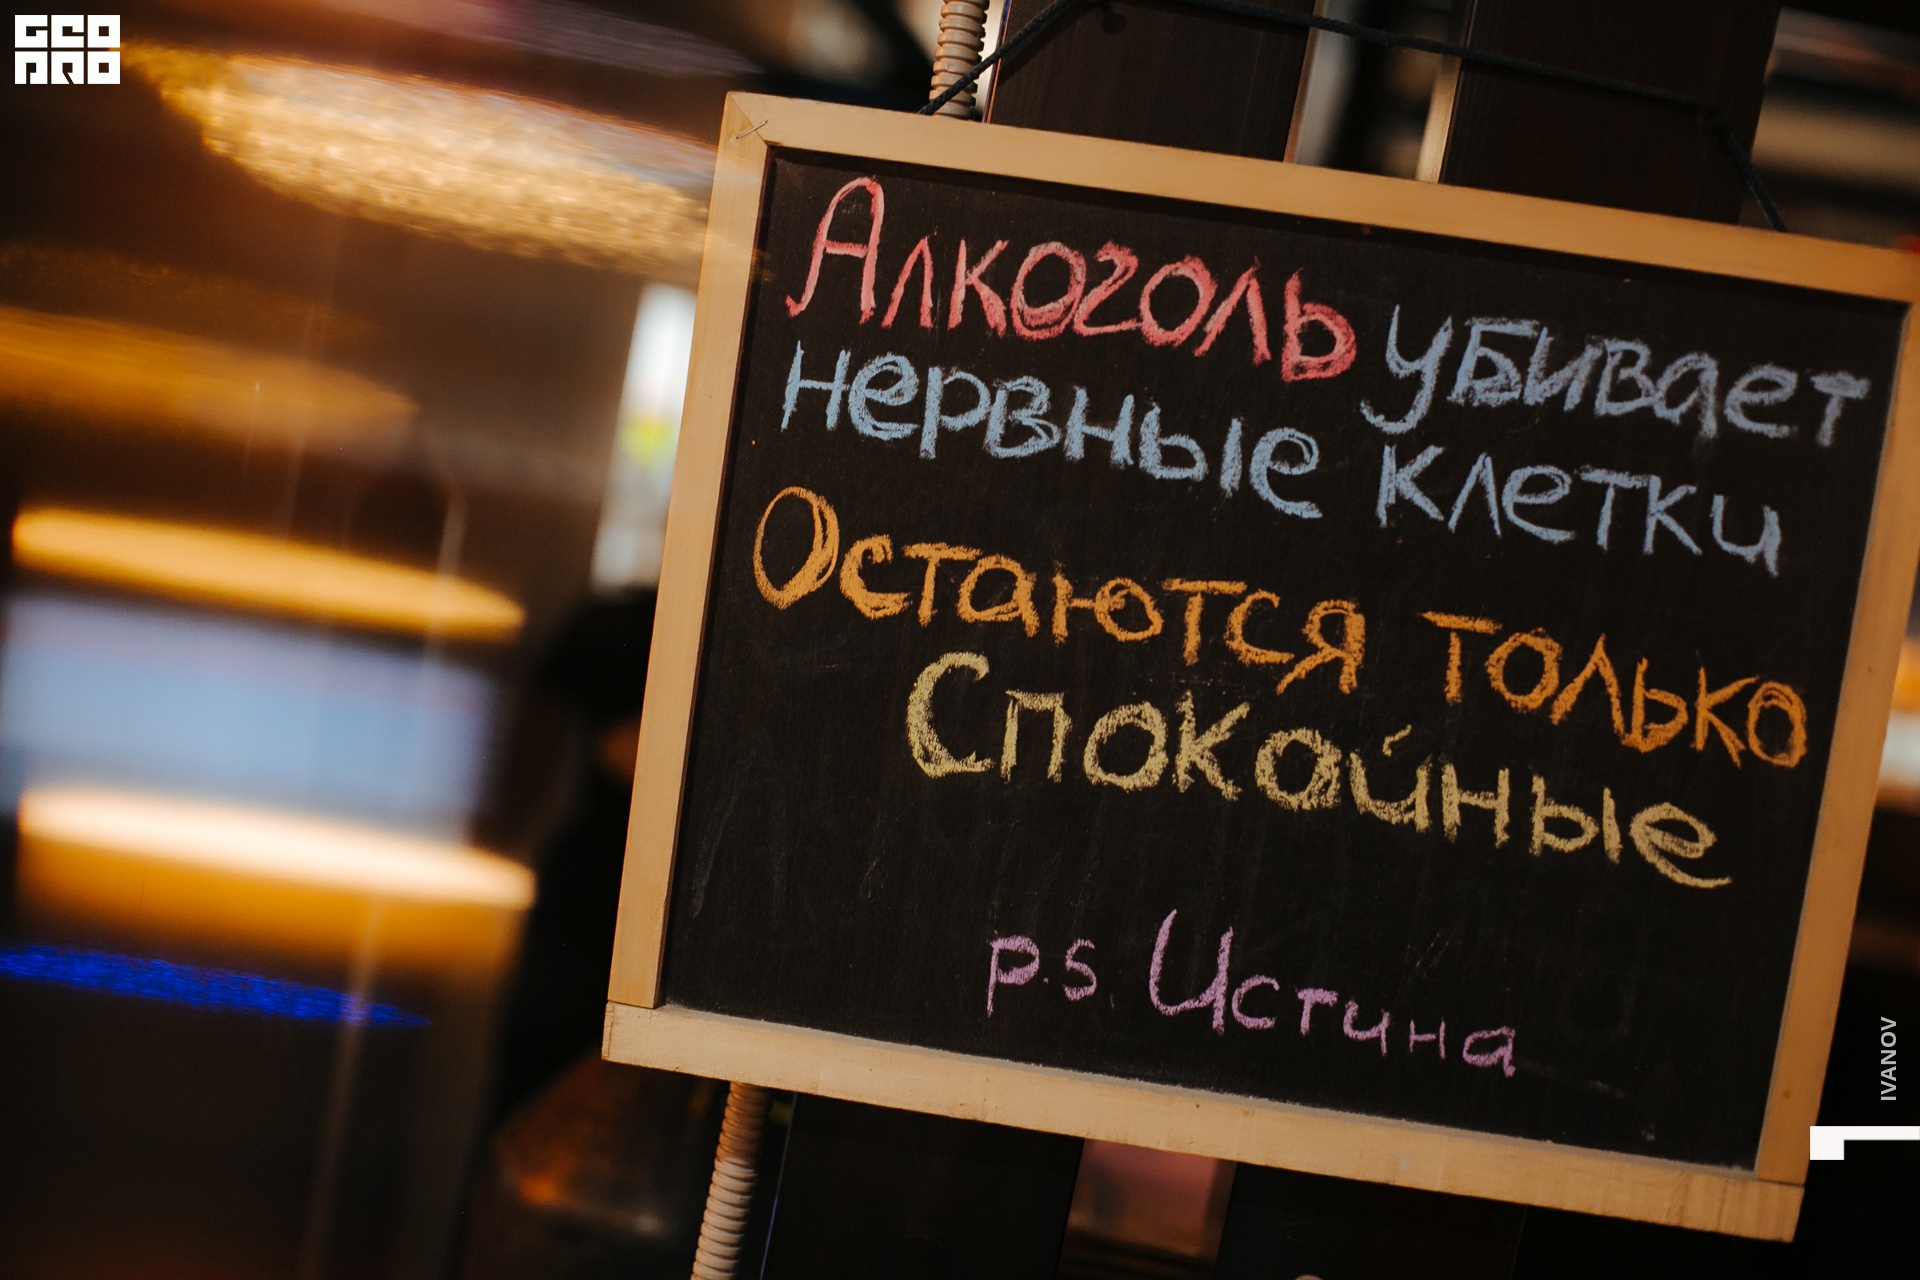 GEO
PRO
Алкоголь убивает
нервные клетки
Остаются только
Спокойные
p.s. Истина
IVANOV